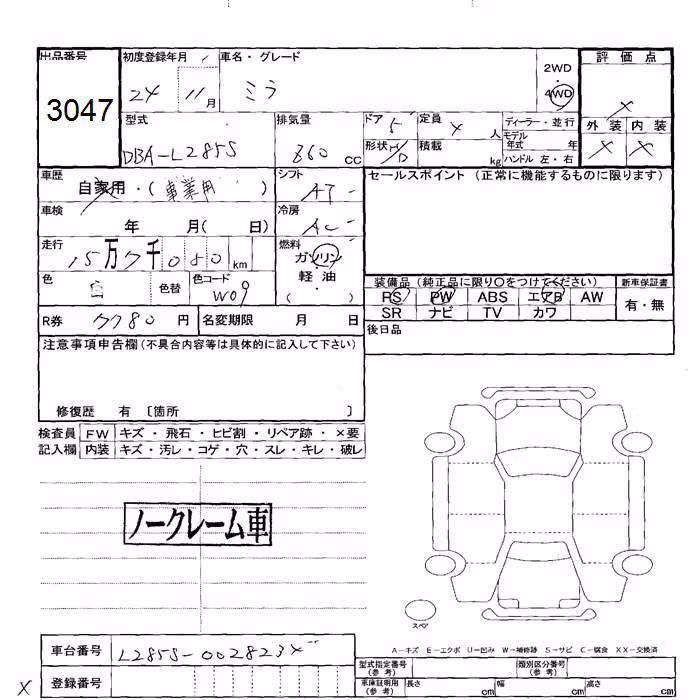 出品番号
3047
初度登録年月
24 11月
車名・グレード
ミラ
2WD
・
4WD
評価点
×
外装 内装
× ×
型式
DBA-L285S
排気量
660 cc
ドア 5
形状 H/B
定員 4 人
積載 kg
ディーラー・並行
モデル年式 年
ハンドル 左・右
車歴
自家用・(事業用)
シフト
AT
セールスポイント (正常に機能するものに限ります)
車検
年 月( 日)
冷房
AC
走行
15万7千080km
燃料
ガソリン
・
軽油
( )
色
白
色替
色コード
W09
装備品 (純正品に限り〇をつけてください)
PS PW ABS エアB AW
SR ナビ TV カワ
新車保証書
有・無
R券 7780円
名変期限 月 日
後日品
注意事項申告欄 (不具合内容等は具体的に記入して下さい)
修復歴 有 〔箇所 〕
検査員記入欄
FW キズ・飛石・ヒビ割・リペア跡・×要
内装 キズ・汚レ・コゲ・穴・スレ・キレ・破レ
ノークレーム車
スペア
A-キズ E-エクボ U-凹み W-補修跡 S-サビ C-腐食 XX-交換済
車台番号 L285S-0028234
型式指定番号(参考)
類別区分番号(参考)
× 登録番号
車庫証明用(参考) 長さ cm 幅 cm 高さ cm